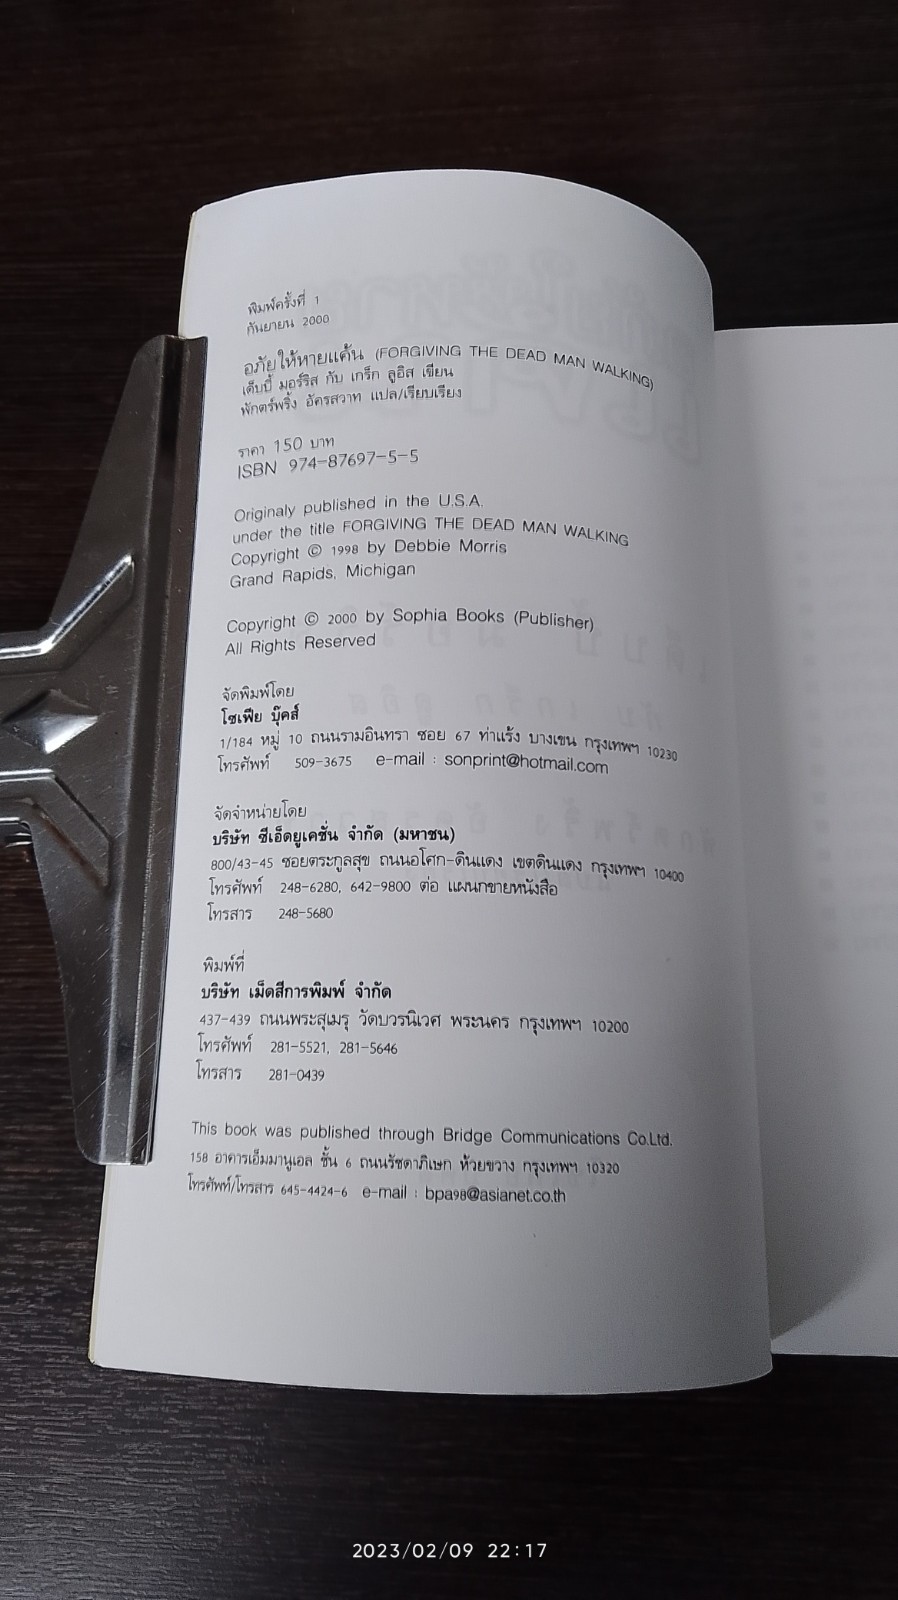 พิมพ์ครั้งที่ 1
กันยายน 2000
อภัยให้หายแค้น (FORGIVING THE DEAD MAN WALKING)
เด็บบี้ มอร์ริส กับ เกร็ก ลูอิส เขียน
พักตร์พริ้ง อัครสวาท แปล/เรียบเรียง
ราคา 150 บาท
ISBN 974-87697-5-5
Originaly published in the U.S.A.
under the title FORGIVING THE DEAD MAN WALKING
Copyright © 1998 by Debbie Morris
Grand Rapids, Michigan
Copyright © 2000 by Sophia Books (Publisher)
All Rights Reserved
จัดพิมพ์โดย
โซเฟีย บุ๊คส์
1/184 หมู่ 10 ถนนรามอินทรา ซอย 67 ท่าแร้ง บางเขน กรุงเทพฯ 10230
โทรศัพท์ 509-3675 e-mail : sonprint@hotmail.com
จัดจำหน่ายโดย
บริษัท ซีเอ็ดยูเคชั่น จำกัด (มหาชน)
800/43-45 ซอยตระกูลสุข ถนนอโศก-ดินแดง เขตดินแดง กรุงเทพฯ 10400
โทรศัพท์ 248-6280, 642-9800 ต่อ แผนกขายหนังสือ
โทรสาร 248-5680
พิมพ์ที่
บริษัท เม็ดสีการพิมพ์ จำกัด
437-439 ถนนพระสุเมรุ วัดบวรนิเวศ พระนคร กรุงเทพฯ 10200
โทรศัพท์ 281-5521, 281-5646
โทรสาร 281-0439
This book was published through Bridge Communications Co.Ltd.
158 อาคารเอ็มมานูเอล ชั้น 6 ถนนรัชดาภิเษก ห้วยขวาง กรุงเทพฯ 10320
โทรศัพท์/โทรสาร 645-4424-6 e-mail : bpa98@asianet.co.th
2023/02/09 22:17